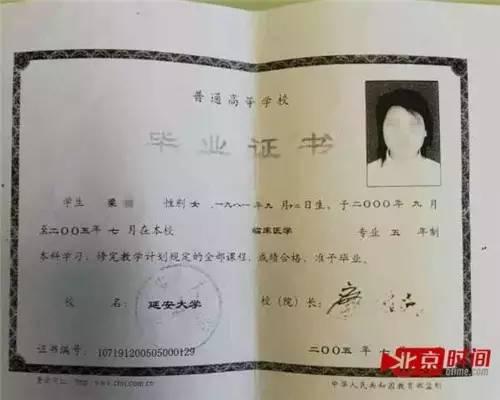 普通高等学校
毕业证书
学生 梁 性别 女, 一九八一年九月十二日生, 于二〇〇〇年 九 月
至二〇〇五年 七 月在本校 临床医学 专业 五 年制
本科学习, 修完教学计划规定的全部课程, 成绩合格, 准予毕业。
校 名: 延安大学 校(院)长:
证书编号: 107191200505000129 二〇〇五年 七
查询网址: http://www.chsi.com.cn 中华人民共和国教育部监制
北京时间
btime.com